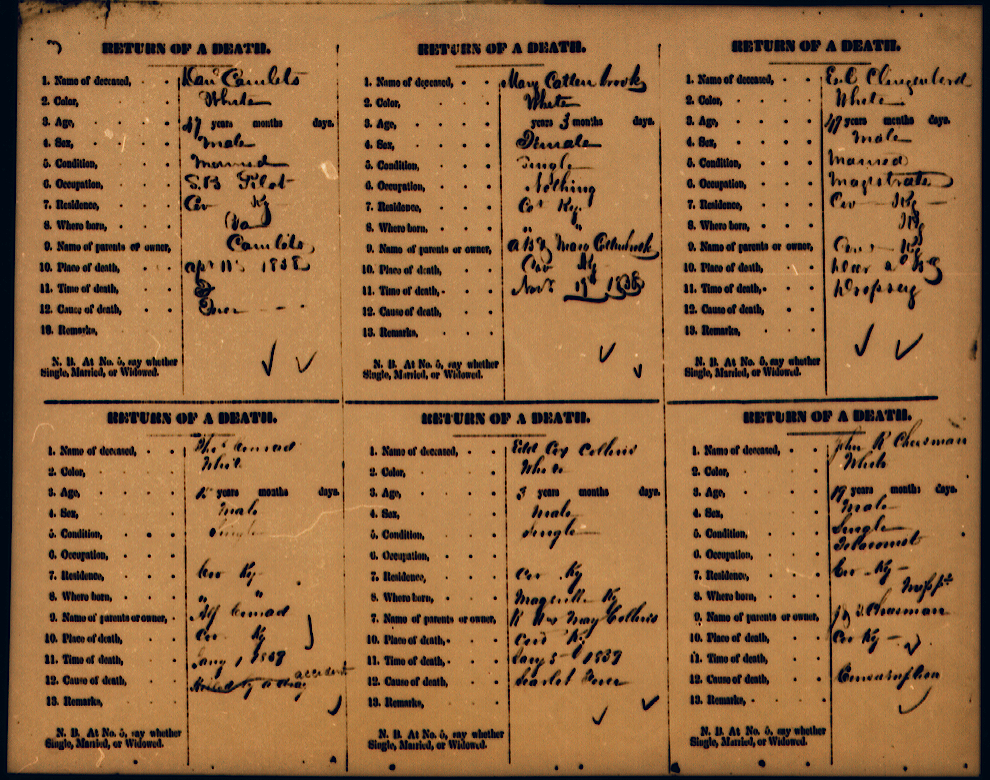 RETURN OF A DEATH.
1. Name of deceased, Camlets
2. Color, White
3. Age, 47 years months days.
4. Sex, Male
5. Condition, Married
6. Occupation, S.B Pilot
7. Residence, Cov Ky
8. Where born, Va
9. Name of parents or owner, Camlets
10. Place of death, 1858
11. Time of death,
12. Cause of death,
13. Remarks,
N. B. At No. 5, say whether
Single, Married, or Widowed.
RETURN OF A DEATH.
1. Name of deceased, Mary Cattenbrook
2. Color, White
3. Age, years 3 months days.
4. Sex, Female
5. Condition, Single
6. Occupation, Nothing
7. Residence, Cov Ky
8. Where born, " "
9. Name of parents or owner, Mary
10. Place of death, Cov Ky
11. Time of death, Nov 1858
12. Cause of death,
13. Remarks,
N. B. At No. 5, say whether
Single, Married, or Widowed.
RETURN OF A DEATH.
1. Name of deceased,
2. Color, White
3. Age, 47 years months days.
4. Sex, Male
5. Condition, Married
6. Occupation, Magistrate
7. Residence, Cov Ky
8. Where born, Ky
9. Name of parents or owner, Ky
10. Place of death,
11. Time of death, Dropsey
12. Cause of death,
13. Remarks,
N. B. At No. 5, say whether
Single, Married, or Widowed.
RETURN OF A DEATH.
1. Name of deceased, Thos Conrad
2. Color, White
3. Age, years months days.
4. Sex, Male
5. Condition, Single
6. Occupation,
7. Residence, Cov Ky
8. Where born, " "
9. Name of parents or owner, Alf Conrad
10. Place of death, Cov Ky
11. Time of death, Jany 1 1859
12. Cause of death, accident
13. Remarks,
N. B. At No. 5, say whether
Single, Married, or Widowed.
RETURN OF A DEATH.
1. Name of deceased, Edd Cox Collins
2. Color, White
3. Age, 3 years months days.
4. Sex, Male
5. Condition, Single
6. Occupation,
7. Residence, Cov Ky
8. Where born, Maysville Ky
7. Name of parents or owner, R May Collins
10. Place of death, Cov Ky
11. Time of death, Jany 5 1859
12. Cause of death, Scarlet Fever
13. Remarks,
N. B. At No. 5, say whether
Single, Married, or Widowed.
RETURN OF A DEATH.
1. Name of deceased, John R Chasman
2. Color, White
3. Age, 19 years months days.
4. Sex, Male
5. Condition, Single
6. Occupation,
7. Residence, Cov Ky
8. Where born,
9. Name of parents or owner, Chasman
10. Place of death, Cov Ky
11. Time of death,
12. Cause of death, Consumption
13. Remarks,
N. B. At No. 5, say whether
Single, Married, or Widowed.